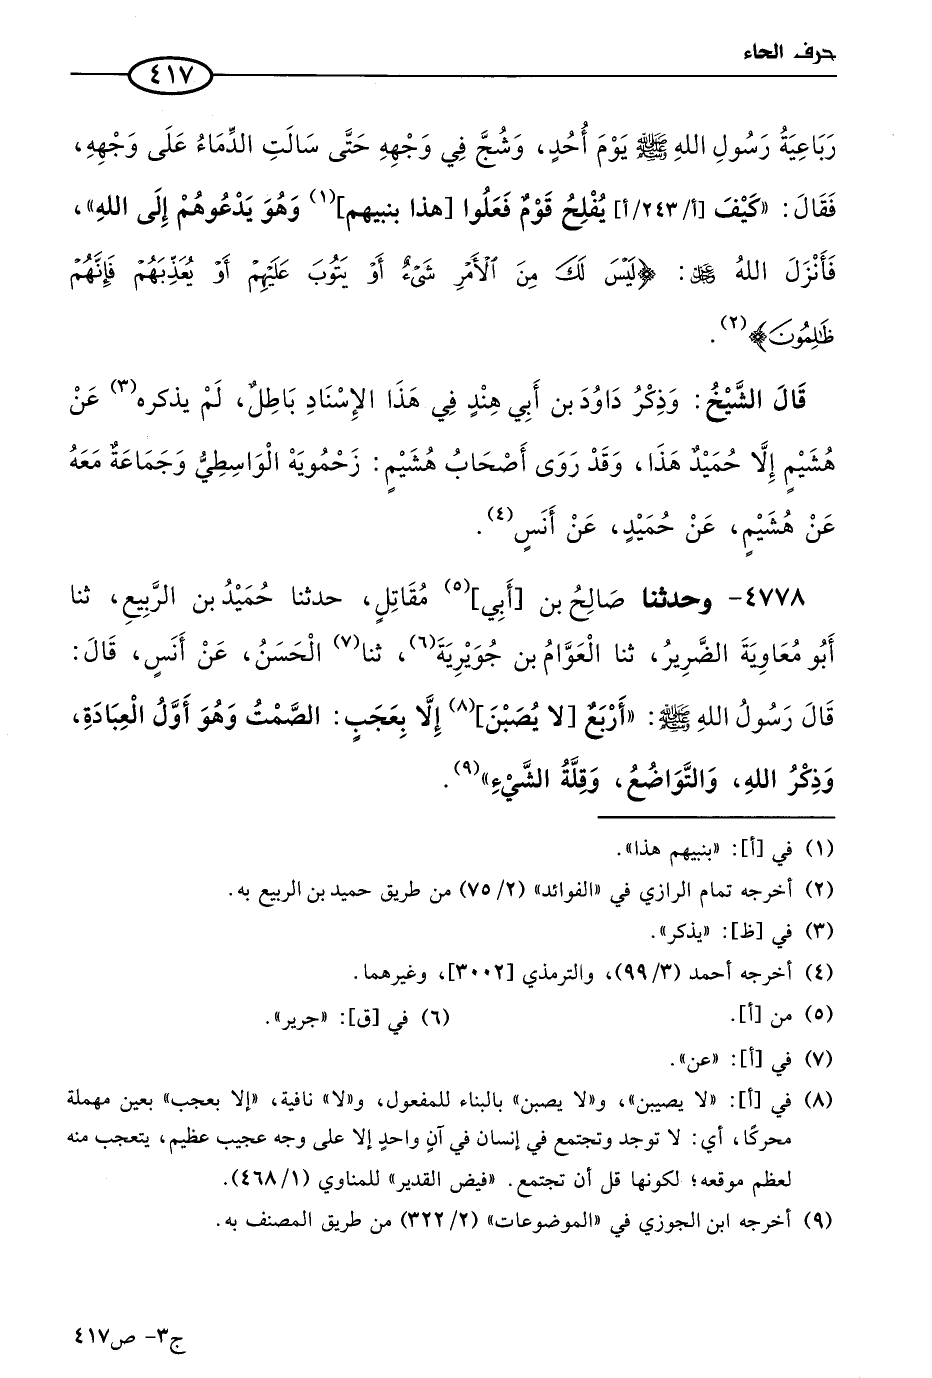 حرف الحاء
٤١٧
رَبَاعِيَةُ رَسُولِ اللهِ ﷺ يَوْمَ أُحُدٍ، وَشُجَّ فِي وَجْهِهِ حَتَّى سَالَتِ الدِّمَاءُ عَلَى وَجْهِهِ،
فَقَالَ: «كَيْفَ [أ/٢٤٣/أ] يُفْلِحُ قَوْمٌ فَعَلُوا [هذا بنبيهم](١) وَهُوَ يَدْعُوهُمْ إِلَى اللهِ»،
فَأَنْزَلَ اللهُ ﷻ: ﴿لَيْسَ لَكَ مِنَ ٱلْأَمْرِ شَىْءٌ أَوْ يَتُوبَ عَلَيْهِمْ أَوْ يُعَذِّبَهُمْ فَإِنَّهُمْ
ظَٰلِمُونَ﴾(٢).
قَالَ الشَّيْخُ: وَذِكْرُ دَاوُدَ بن أَبِي هِنْدٍ فِي هَذَا الإِسْنَادِ بَاطِلٌ، لَمْ يذكره(٣) عَنْ
هُشَيْمٍ إِلَّا حُمَيْدٌ هَذَا، وَقَدْ رَوَى أَصْحَابُ هُشَيْمٍ: زَحْمُويَهْ الْوَاسِطِيُّ وَجَمَاعَةٌ مَعَهُ
عَنْ هُشَيْمٍ، عَنْ حُمَيْدٍ، عَنْ أَنَسٍ(٤).
٤٧٧٨- وحدثنا صَالِحُ بن [أَبِي](٥) مُقَاتِلٍ، حدثنا حُمَيْدُ بن الرَّبِيعِ، ثنا
أَبُو مُعَاوِيَةَ الضَّرِيرُ، ثنا الْعَوَّامُ بن جُوَيْرِيَةَ(٦)، ثنا(٧) الْحَسَنُ، عَنْ أَنَسٍ، قَالَ:
قَالَ رَسُولُ اللهِ ﷺ: «أَرْبَعٌ [لا يُصَبْنَ](٨) إِلَّا بِعَجَبٍ: الصَّمْتُ وَهُوَ أَوَّلُ الْعِبَادَةِ،
وَذِكْرُ اللهِ، وَالتَّوَاضُعُ، وَقِلَّةُ الشَّيْءِ»(٩).
(١) في [أ]: «بنبيهم هذا».
(٢) أخرجه تمام الرازي في «الفوائد» (٢/ ٧٥) من طريق حميد بن الربيع به.
(٣) في [ظ]: «يذكر».
(٤) أخرجه أحمد (٣/ ٩٩)، والترمذي [٣٠٠٢]، وغيرهما.
(٥) من [أ]. (٦) في [ق]: «جرير».
(٧) في [أ]: «عن».
(٨) في [أ]: «لا يصيبن»، و«لا يصبن» بالبناء للمفعول، و«لا» نافية، «إلا بعجب» بعين مهملة
محركًا، أي: لا توجد وتجتمع في إنسان في آنٍ واحدٍ إلا على وجه عجيب عظيم، يتعجب منه
لعظم موقعه؛ لكونها قل أن تجتمع. «فيض القدير» للمناوي (١/ ٤٦٨).
(٩) أخرجه ابن الجوزي في «الموضوعات» (٢/ ٣٢٢) من طريق المصنف به.
ج٣- ص٤١٧